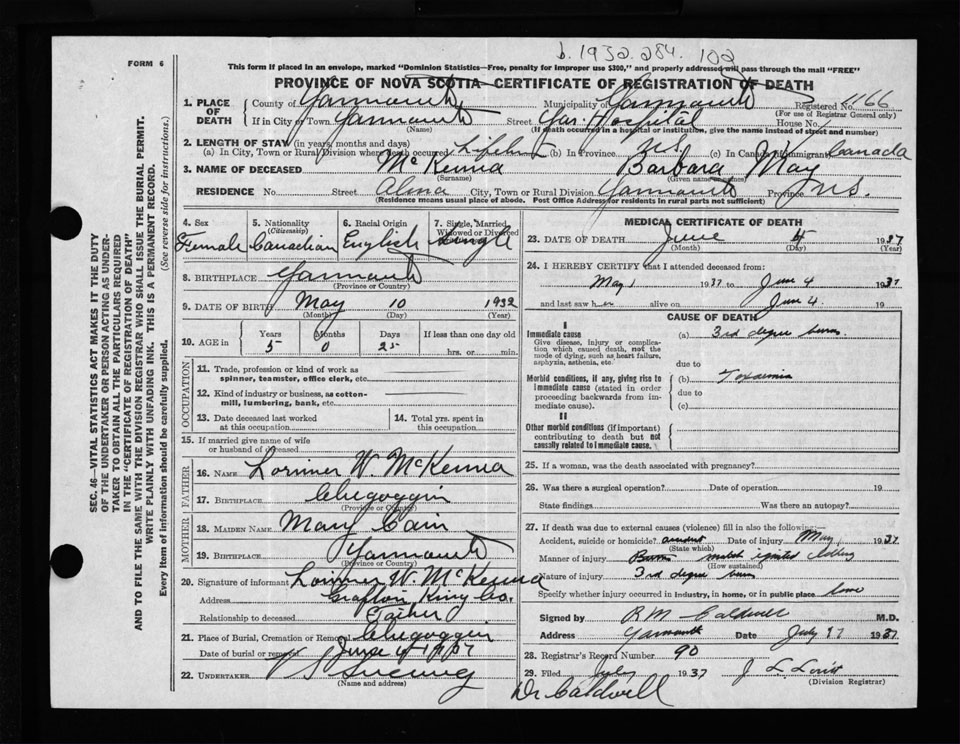 b. 1932. 284. 102
FORM 6
This form if placed in an envelope, marked "Dominion Statistics—Free, penalty for improper use $300," and properly addressed will pass through the mail "FREE"
PROVINCE OF NOVA SCOTIA—CERTIFICATE OF REGISTRATION OF DEATH
1. PLACE OF DEATH County of Yarmouth Municipality of Yarmouth Registered No. 1166
(For use of Registrar General only)
If in City or Town Yarmouth Street Yar. Hospital House No.
(Name) (If death occurred in a hospital or institution, give the name instead of street and number)
2. LENGTH OF STAY (in years, months and days)
(a) In City, Town or Rural Division where death occurred (b) In Province yes (c) In Canada if immigrant Canada
3. NAME OF DECEASED McKenna Barbara May
(Surname) (Given name or names)
RESIDENCE No. Street Alma City, Town or Rural Division Yarmouth Province N.S.
(Residence means usual place of abode. Post Office Address for residents in rural parts not sufficient)
4. Sex 5. Nationality (Citizenship) 6. Racial Origin 7. Single, Married, Widowed or Divorced
Female Canadian English Single
8. BIRTHPLACE Yarmouth
(Province or Country)
9. DATE OF BIRTH May 10 1932
(Month) (Day) (Year)
10. AGE in Years Months Days If less than one day old
5 0 25 hrs. or min.
OCCUPATION
11. Trade, profession or kind of work as spinner, teamster, office clerk, etc.
12. Kind of industry or business, as cotton-mill, lumbering, bank, etc.
13. Date deceased last worked at this occupation 14. Total yrs. spent in this occupation
15. If married give name of wife or husband of deceased
FATHER
16. NAME Lorimer W. McKenna
17. BIRTHPLACE Chegoggin
(Province or Country)
MOTHER
18. MAIDEN NAME Mary Cain
19. BIRTHPLACE Yarmouth
(Province or Country)
20. Signature of informant Lorimer W. McKenna
Address Grafton King Co.
Relationship to deceased Father
21. Place of Burial, Cremation or Removal Chegoggin
Date of burial or removal June
22. UNDERTAKER V S Sweeny
(Name and address)
MEDICAL CERTIFICATE OF DEATH
23. DATE OF DEATH June 4 1937
(Month) (Day) (Year)
24. I HEREBY CERTIFY that I attended deceased from:
May 1 1937 to June 4 1937
and last saw her alive on June 4. 19
CAUSE OF DEATH
I
Immediate cause (a) 3rd degree burns
Give disease, injury or complication which caused death, not the mode of dying, such as heart failure, asphyxia, asthenia, etc.
due to
Morbid conditions, if any, giving rise to immediate cause (stated in order proceeding backwards from immediate cause). (b) Toxaemia
due to
(c)
II
Other morbid conditions (if important) contributing to death but not causally related to immediate cause.
25. If a woman, was the death associated with pregnancy?
26. Was there a surgical operation? Date of operation 19
State findings Was there an autopsy?
27. If death was due to external causes (violence) fill in also the following:—
Accident, suicide or homicide? accident Date of injury May 1 1937
(State which)
Manner of injury Burns match ignited clothing
(How sustained)
Nature of injury 3rd degree burns
Specify whether injury occurred in industry, in home, or in public place home
Signed by R M Caldwell M.D.
Address Yarmouth Date July 17 1937
28. Registrar's Record Number 90
29. Filed July 1937 J. L.
(Division Registrar)
Dr Caldwell
SEC. 46—VITAL STATISTICS ACT MAKES IT THE DUTY
OF THE UNDERTAKER OR PERSON ACTING AS UNDER-
TAKER TO OBTAIN ALL THE PARTICULARS REQUIRED
IN THE "CERTIFICATE OF REGISTRATION OF DEATH"
AND TO FILE THE SAME WITH THE DIVISION REGISTRAR WHO SHALL ISSUE THE BURIAL PERMIT.
WRITE PLAINLY WITH UNFADING INK. THIS IS A PERMANENT RECORD.
Every item of information should be carefully supplied. (See reverse side for instructions.)